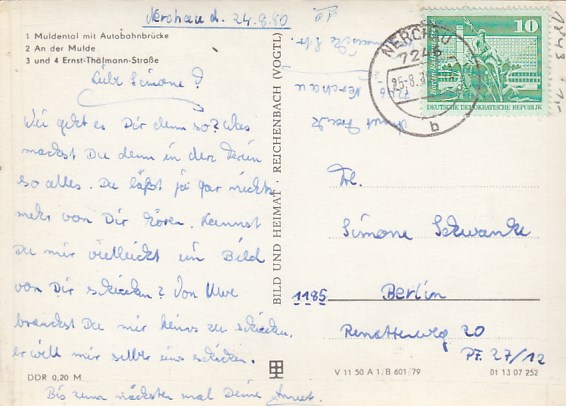 Nerchau d. 24.8.80
1 Muldental mit Autobahnbrücke
2 An der Mulde
3 und 4 Ernst-Thälmann-Straße
Liebe Simone!
Wie geht es Dir denn so? Was
machst Du denn in den Ferien
so alles. Du läßt ja gar nichts
mehr von Dir hören. Kannst
Du mir vielleicht ein Bild
von Dir schicken? Von Uwe
brauchst Du mir keins zu schicken,
er will mir selber eins schicken.
Bis zum nächsten mal Deine
DDR 0,20 M
BILD UND HEIMAT REICHENBACH (VOGTL)
Nerchau
NERCHAU
7246
b
10
DEUTSCHE DEMOKRATISCHE REPUBLIK
Frl.
Simone Schwanke
1185 Berlin
Renatenweg 20
PF. 27/12
V 11 50 A 1, B 601/79
01 13 07 252